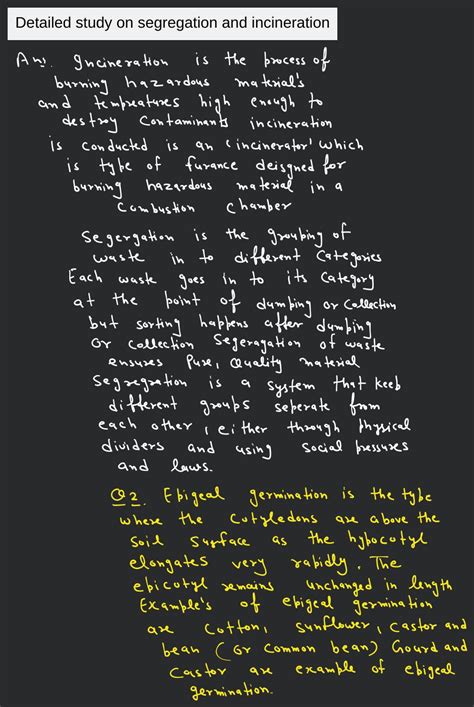 Detailed study on segregation and incineration
Ans. Incineration is the process of
burning hazardous material's
and tempreatures high enough to
destroy Contaminants incineration
is conducted is an 'incinerator' which
is type of furance deisgned for
burning hazardous material in a
Combustion chamber
Segergation is the grouping of
waste in to different Categories
Each waste goes in to its Category
at the point of dumping or Collection
but sorting happens after dumping
or collection Segeragation of waste
ensures Pure, Quality material
Segregration is a system that keep
different groups seperate from
each other, either through Physical
dividers and using social pressures
and laws.
Q2. Epigeal germination is the type
where the Cotyledons are above the
Soil Surface as the hypocotyl
elongates very rapidly. The
epicotyl remains unchanged in length
Example's of epigeal germination
are Cotton, Sunflower, Castor and
bean (Or Common bean) Gourd and
Castor are example of epigeal
germination.